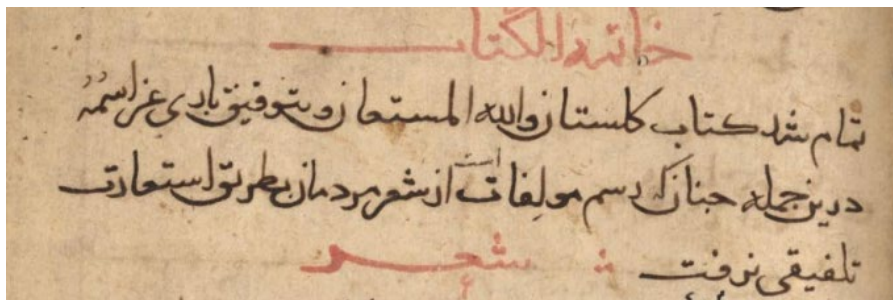 خاتمة الکتاب
تمام شد کتاب کلستان والله المستعان وبتوفیق باری عز اسمهُ
درین جمله جنانک رسم مولفات است از شعر مردمان بطریق استعارت
تلفیقی نرفت شعر